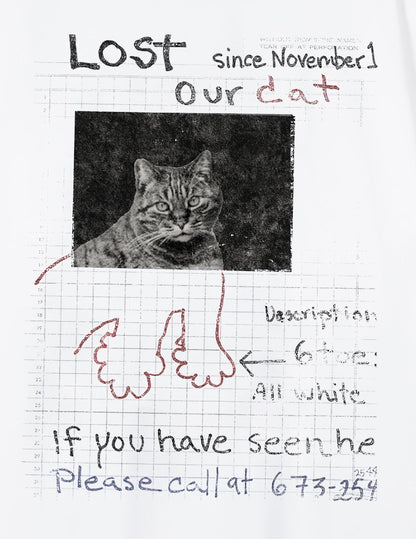 TEAR OFF AT PERFORATION
LOST since November 1
our cat
Description
6 toe:
All white
If you have seen he
Please call at 673-254